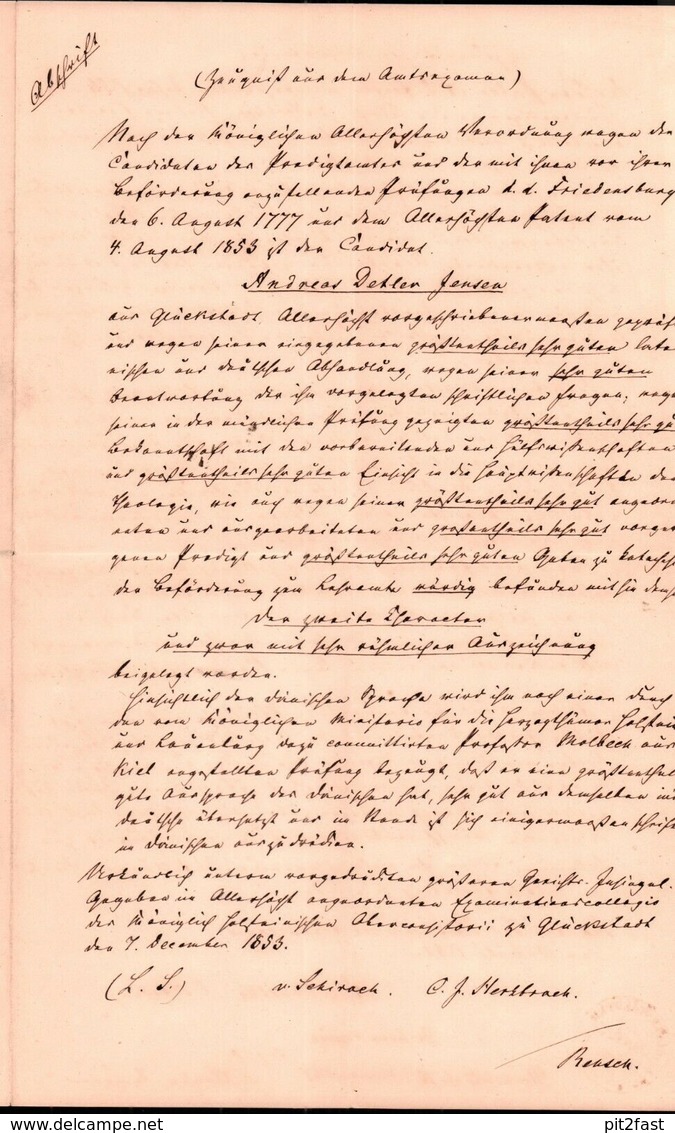 Abschrift
(Zeugniß aus dem Amtsexamen)
Nach der Königlichen Allerhöchsten Verordnung wegen der
Candidaten des Predigtamtes und der mit ihnen vor ihrer
Beförderung anzustellenden Prüfungen d. d. Friedensburg
den 6. August 1777 und dem Allerhöchsten Patent vom
4. August 1853 ist der Candidat
Andreas Detlev Jensen
aus Glückstadt Allerhöchst vorgeschriebenermaaßen geprüf
und wegen seiner eingegebenen größtentheils sehr guten latei
nischen und deutschen Abhandlung, wegen seiner sehr guten
Beantwortung der ihm vorgelegten schriftlichen Fragen, wege
seiner in der mündlichen Prüfung gezeigten größtentheils sehr gu
Bekanntschaft mit den vorbereitenden und Hülfswissenschaften
und größtentheils sehr guten Einsicht in die Hauptwissenschaften der
Theologie, wie auch wegen seiner größtentheils sehr gut angeord
neten und ausgearbeiteten und großentheils sehr gut vorgetra
genen Predigt und größtentheils sehr guten Gaben zu katechisi
der Beförderung zum Lehramte würdig befunden mithin dems
der zweite Character
und zwar mit sehr rühmlicher Auszeichnung
beigelegt worden.
Hinsichtlich der dänischen Sprache wird ihm nach einer durch
den vom Königlichen Ministerio für die Herzogthümer Holstein
und Lauenburg dazu committirten Professor Molbech aus
Kiel angestellten Prüfung bezeugt, daß er eine größtentheil
gute Aussprache des Dänischen hat, sehr gut aus demselben in's
deutsche übersetzt und im Stande ist sich einigermaaßen schrift
im dänischen auszudrücken.
Urkundlich unterm vorgedruckten größeren Gerichts-Insiegel.
Gegeben im Allerhöchst angeordneten Examinationscollegio
des Königlich Holsteinischen Oberconsistorii zu Glückstadt
den 7. December 1853.
(L. S.) v. Schirach. C. J. Herzbruch.
Rensch.
pit2fast